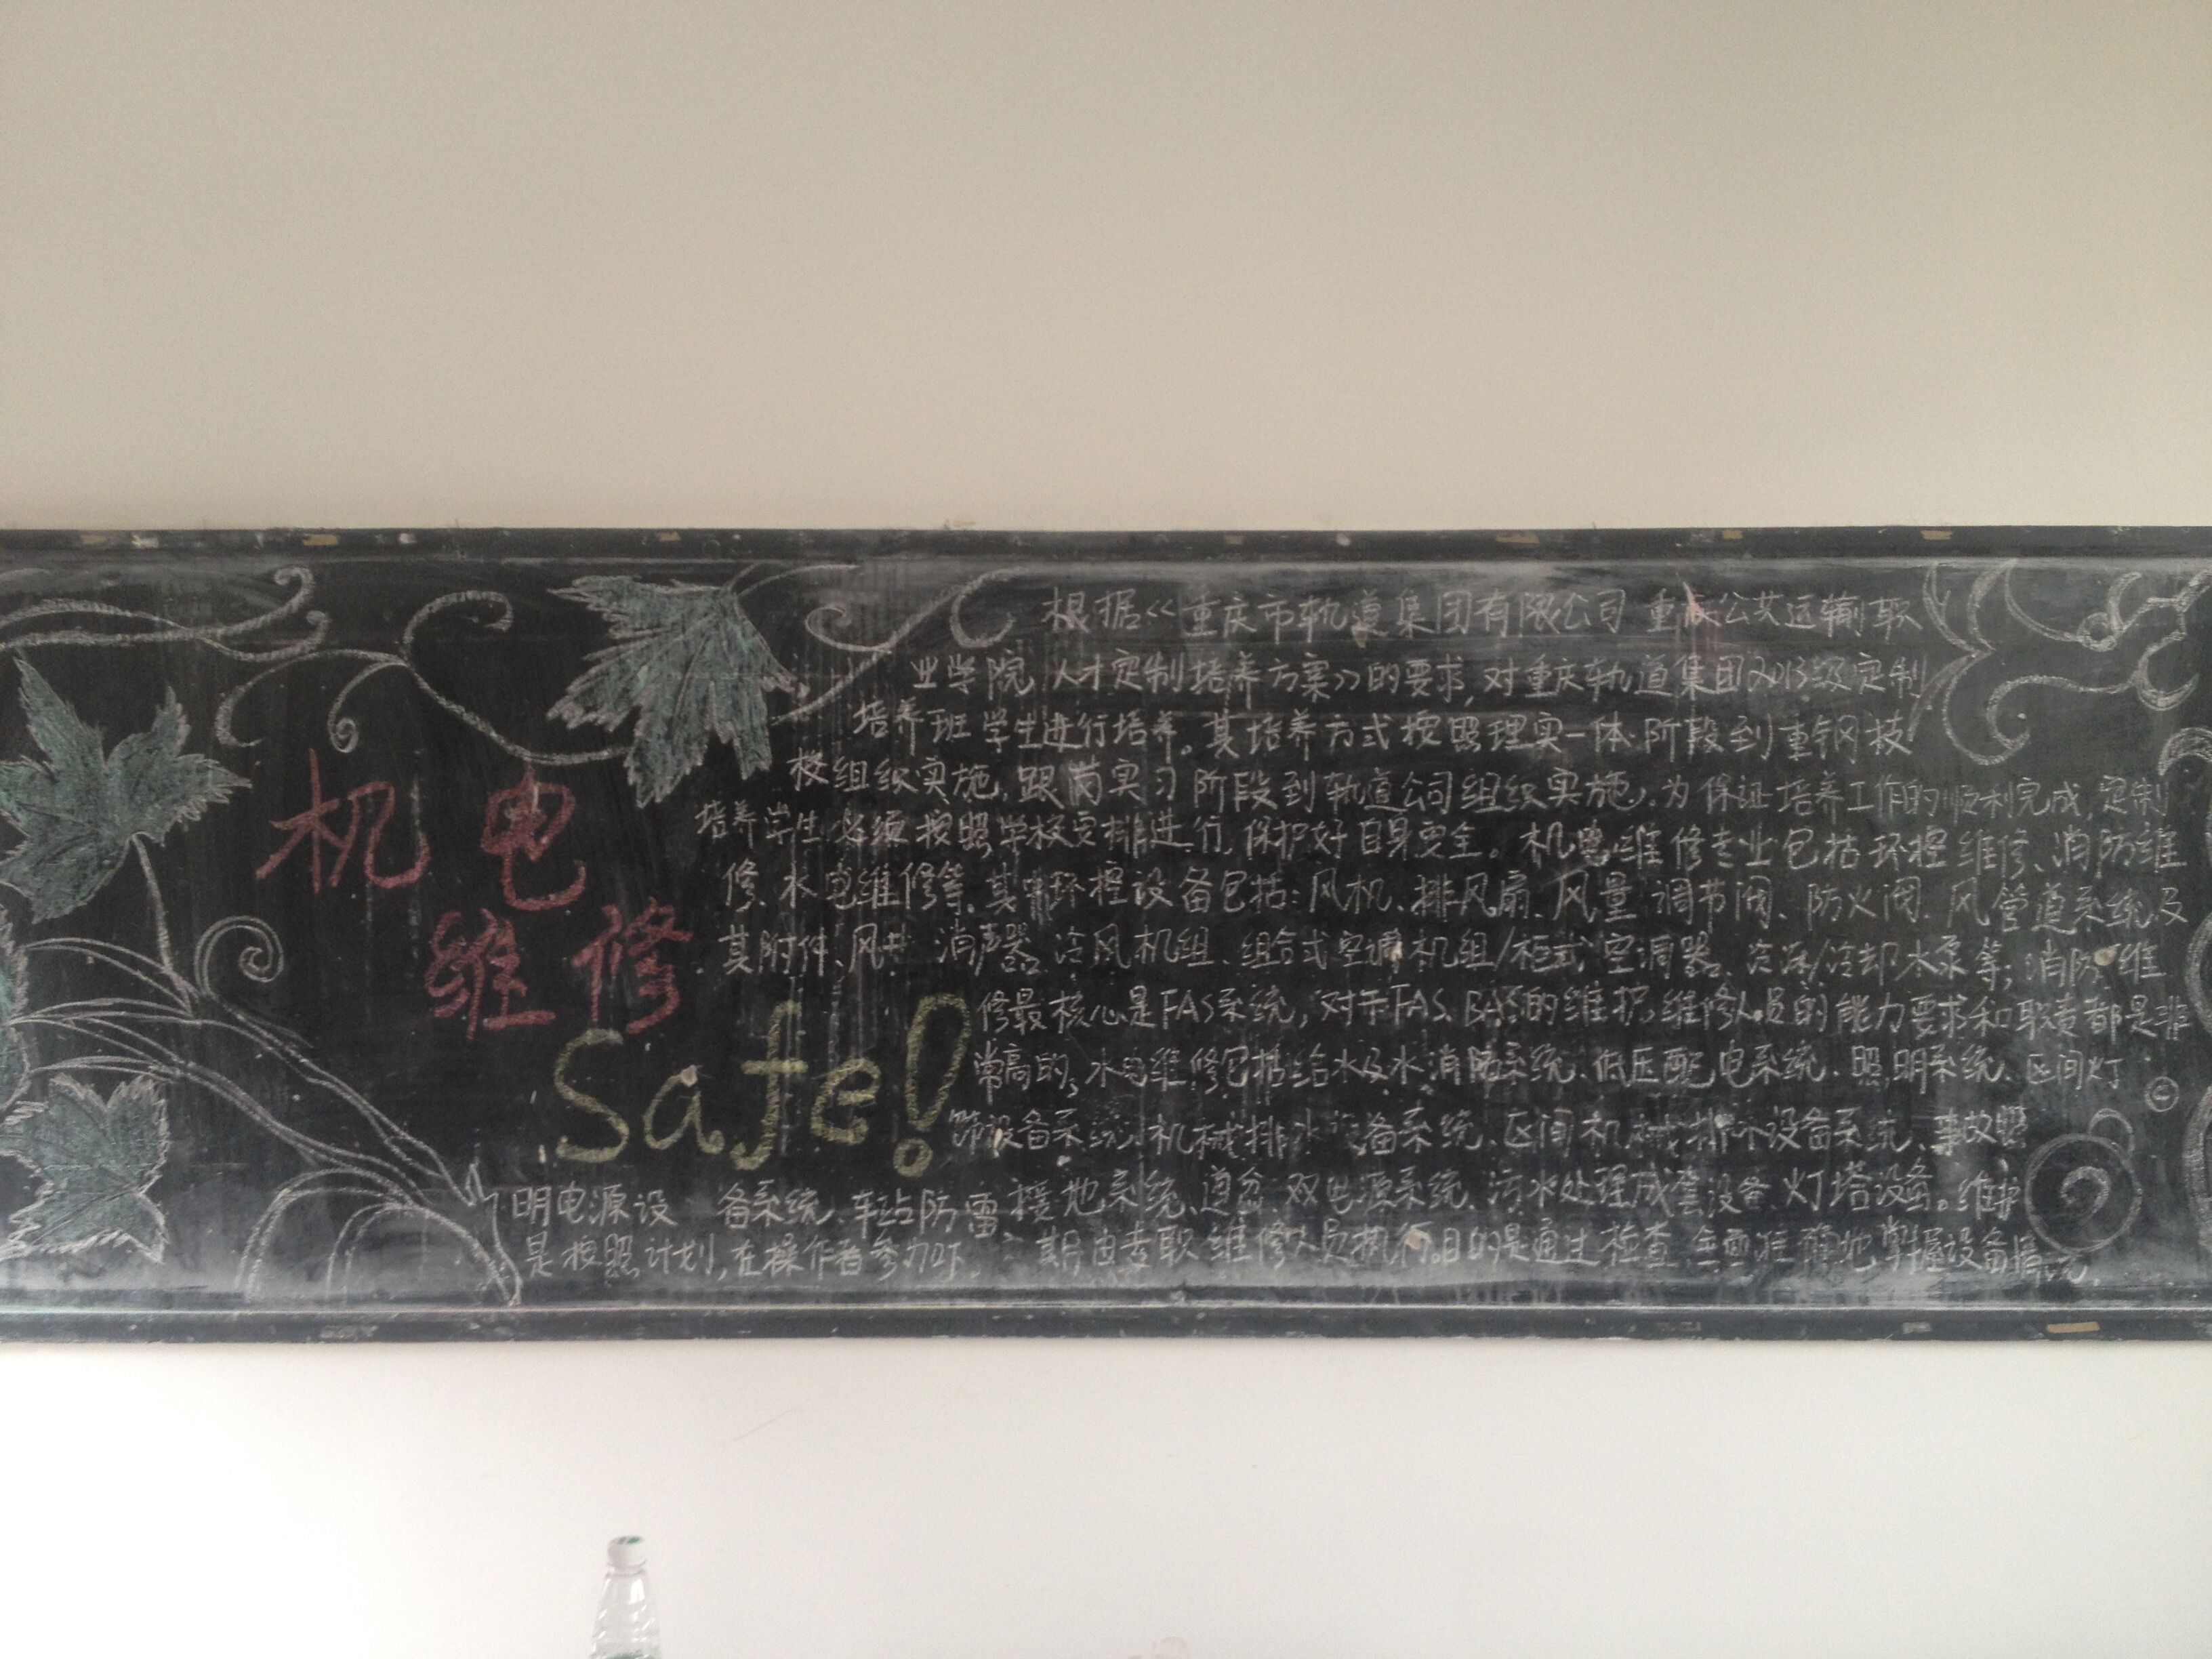 机电
维修
Safe!
根据<<重庆市轨道集团有限公司 重庆公共运输职
业学院 人才定制培养方案>>的要求,对重庆轨道集团2013级定制
培养班学生进行培养。其培养方式按照理实一体阶段到重钢技
校组织实施,跟岗实习阶段到轨道公司组织实施。为保证培养工作的顺利完成,定制
培养学生必须按照学校安排进行,保护好自身安全。机电维修专业包括环控维修、消防维
修、水电维修等。其中环控设备包括:风机、排风扇、风量调节阀、防火阀、风管道系统及
其附件、风井、消声器、冷风机组、组合式空调机组/柜式空调器、冷冻/冷却水泵等;消防维
修最核心是FAS系统,对于FAS、BAS的维护,维修人员的能力要求和职责都是非
常高的;水电维修包括给水及水消防系统、低压配电系统、照明系统、区间灯
饰设备系统、机械排水设备系统、区间机械排水设备系统、事故照
明电源设备系统、车站防雷、接地系统、道岔双电源系统、污水处理成套设备、灯塔设备。维护
是按照计划,在操作者参加下,由专职维修人员执行。目的是通过检查,全面准确地掌握设备情况,